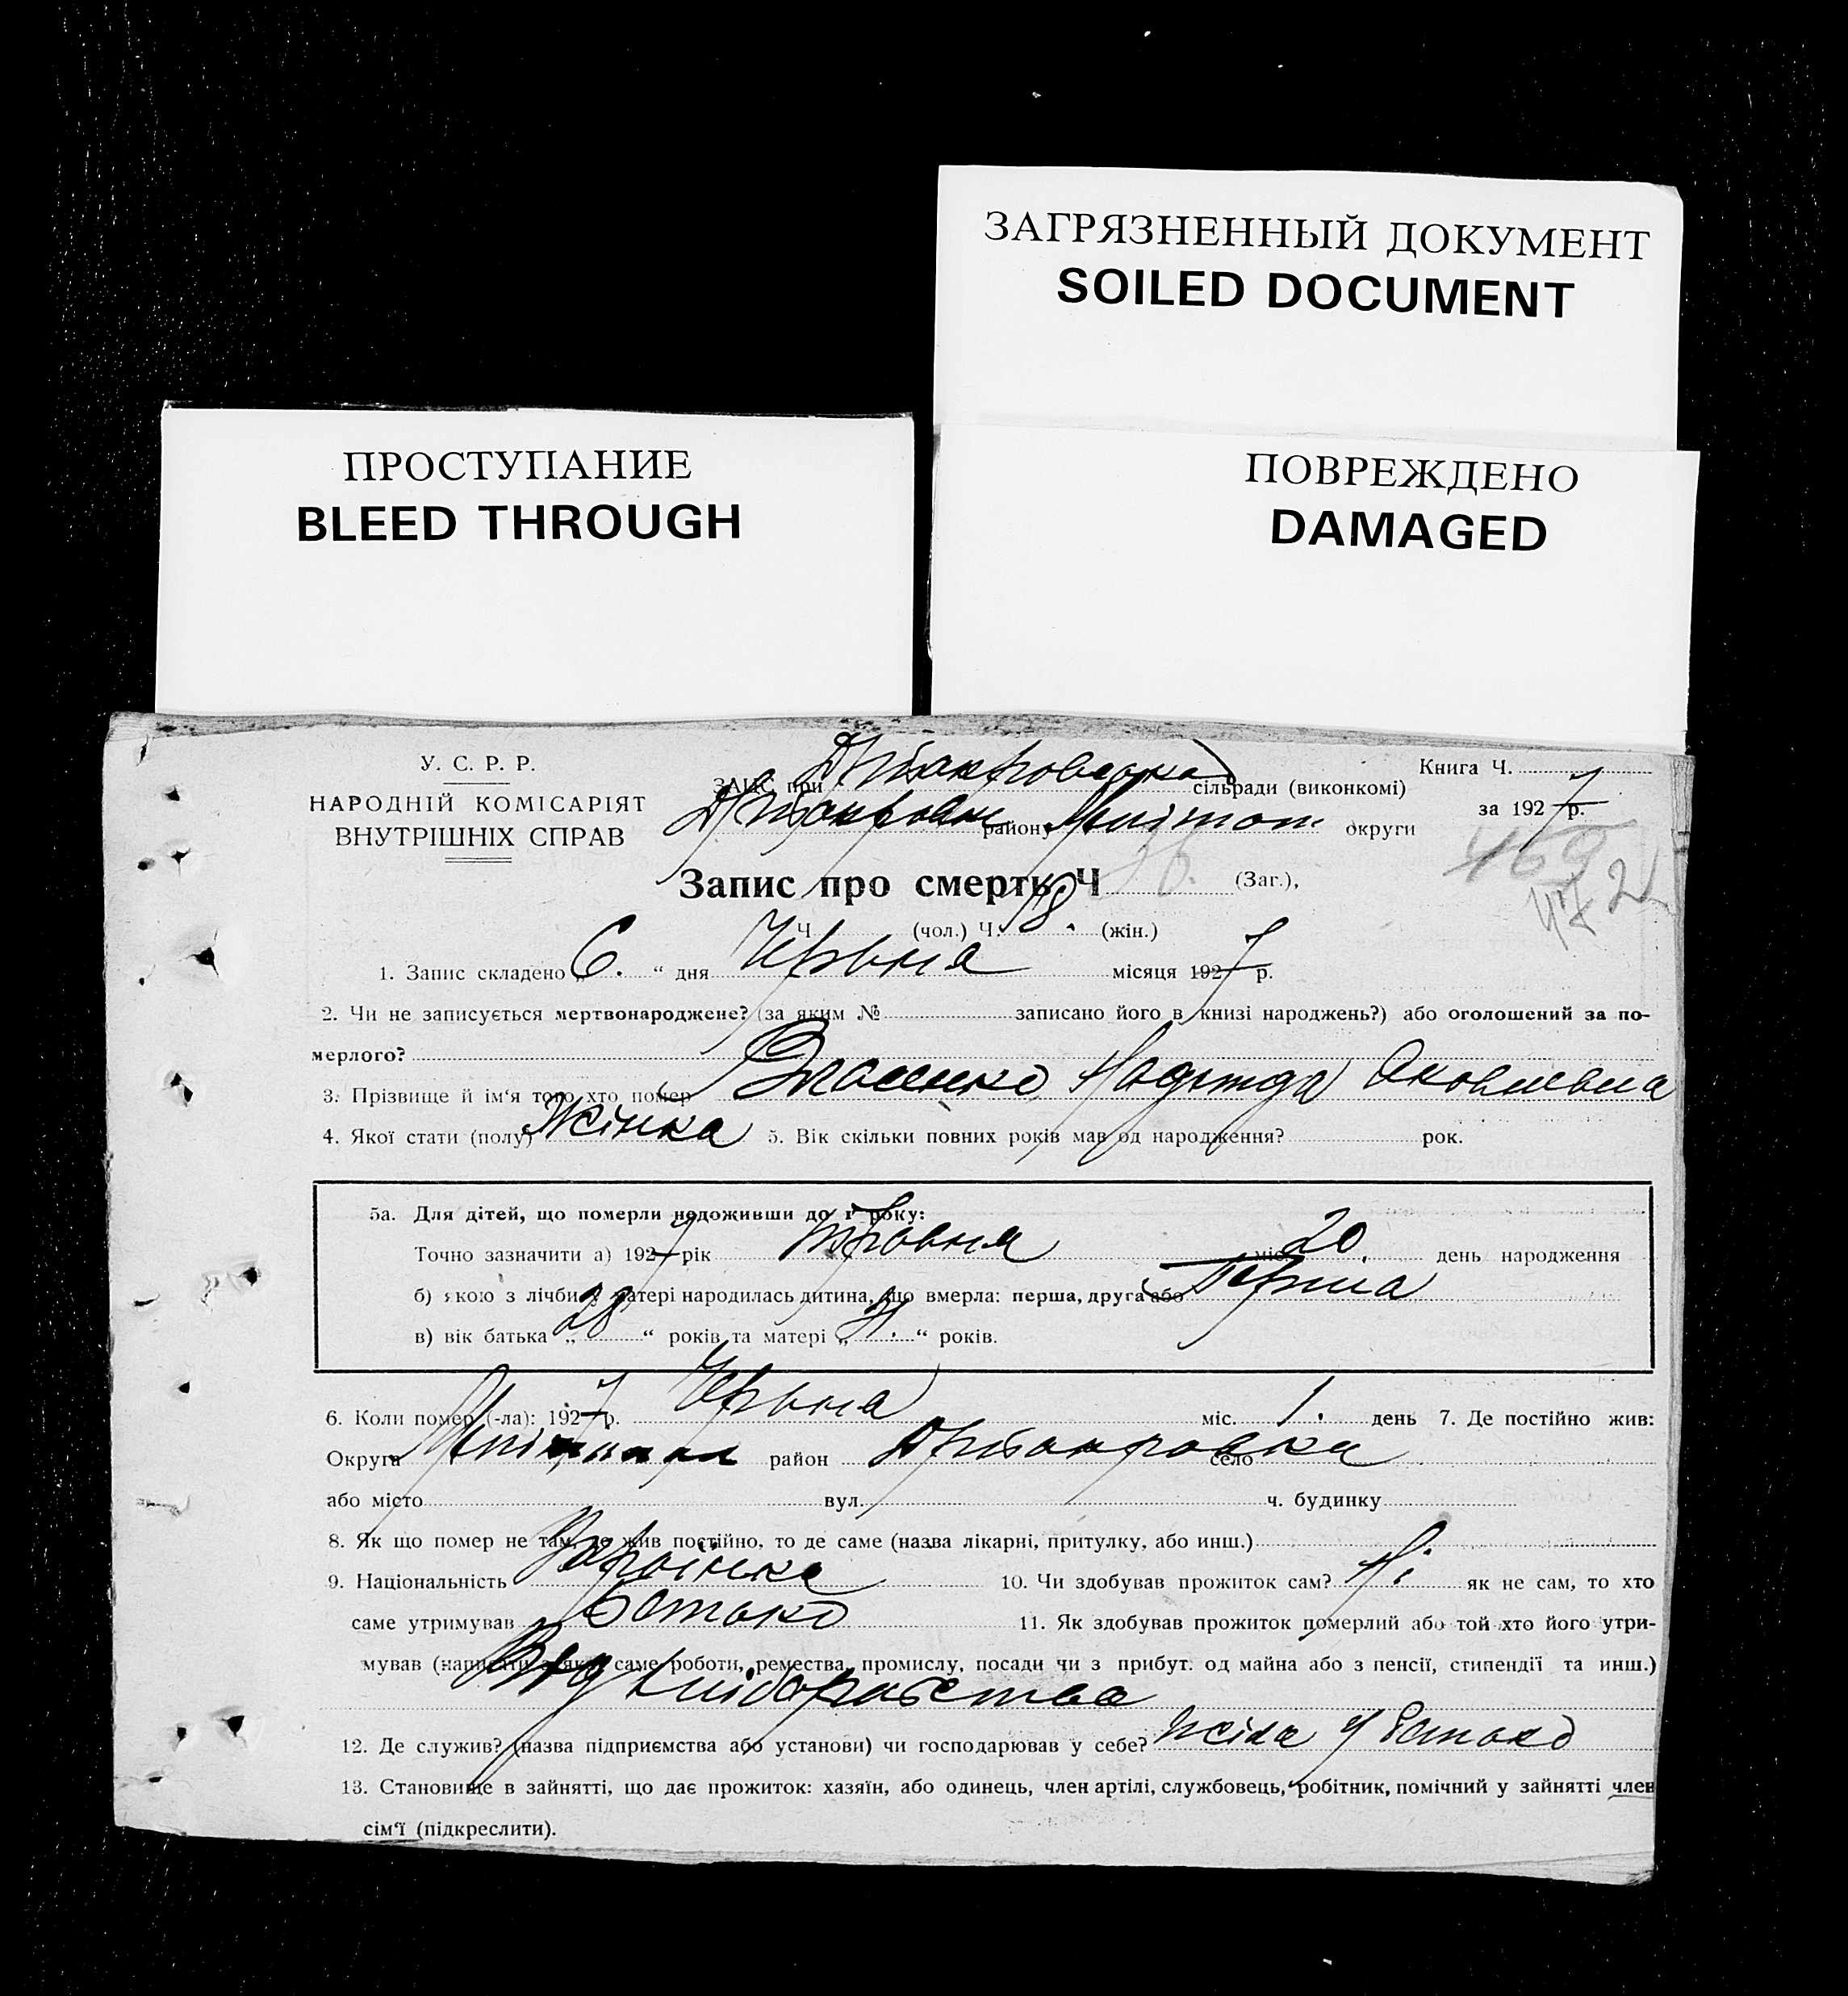 ЗАГРЯЗНЕННЫЙ ДОКУМЕНТ
SOILED DOCUMENT
ПРОСТУПАНИЕ
BLEED THROUGH
ПОВРЕЖДЕНО
DAMAGED
У. С. Р. Р.
НАРОДНІЙ КОМІСАРІЯТ
ВНУТРІШНІХ СПРАВ
ЗАГС при сільради (виконкомі)
району округи
Книга Ч.
за 1927 р.
Запис про смерть Ч 36. (Заг.),
Ч (чол.) Ч. 18. (жін.)
1. Запис складено „ 6. “ дня Червня місяця 1927 р.
2. Чи не записується мертвонароджене? (за яким № записано його в книзі народжень?) або оголошений за по-
мерлого?
3. Прізвище й ім‘я того хто помер Надежда Яковлевна
4. Якої стати (полу) Жінка 5. Вік скільки повних років мав од народження? рок.
5а. Для дітей, що померли недоживши до 1 року:
Точно зазначити а) 1927 рік травня міс. 20. день народження
б) якою з лічби у матері народилась дитина, що вмерла: перша, друга або Перша
в) вік батька „ 28 “ років та матері „ “ років.
6. Коли помер (-ла): 1927 р. Червня міс. 1. день 7. Де постійно жив:
Округа район село
або місто вул. ч. будинку
8. Як що помер не там, де жив постійно, то де саме (назва лікарні, притулку, або инш.)
9. Національність Українка 10. Чи здобував прожиток сам? Ні як не сам, то хто
саме утримував батько 11. Як здобував прожиток померлий або той хто його утри-
мував (написати з якої саме роботи, ремества, промислу, посади чи з прибут. од майна або з пенсії, стипендії та инш.)
Від хліборобства
12. Де служив? (назва підприємства або установи) чи господарював у себе? жила у батька
13. Становище в зайнятті, що дає прожиток: хазяїн, або одинець, член артілі, службовець, робітник, помічний у зайнятті член
сім‘ї (підкреслити).